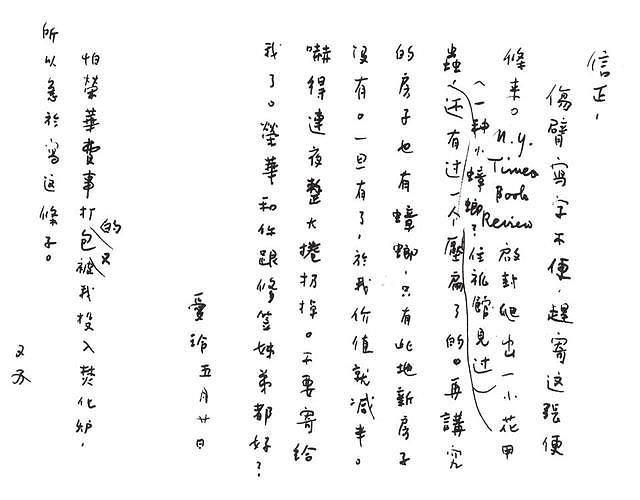 信正，
傷臂寫字不便，趕寄這張便
條来。N.Y. Times Book Review 啟封爬出一小花甲
（一种小蟑螂？住旅館見过）
蟲，还有过一个壓扁了的。再講究
的房子也有蟑螂，只有此地新房子
没有。一旦有了，於我价值就减半。
嚇得連夜整大捲扔掉。不要寄給
我了。榮華和你跟修笠姊弟都好？
愛玲 五月廿日
怕榮華費事打包的又被我投入焚化炉，
所以急於寫這條子。
又及